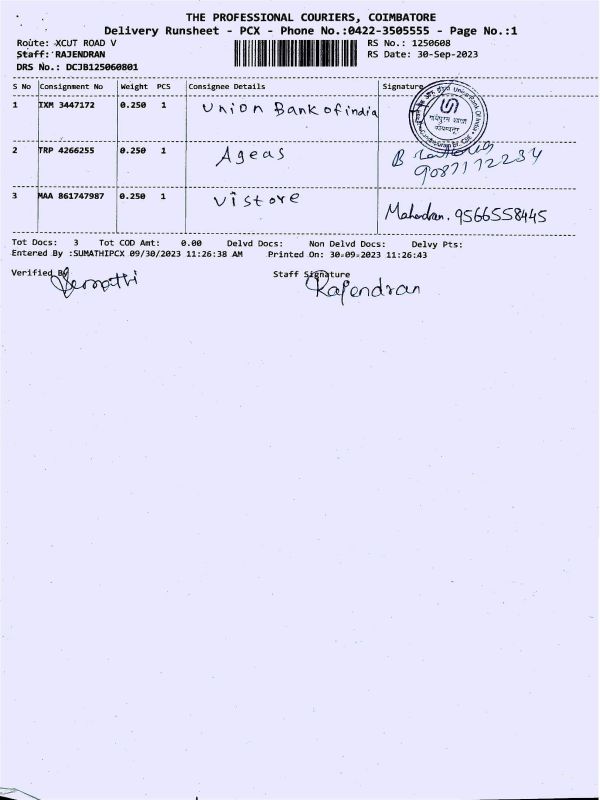 THE PROFESSIONAL COURIERS, COIMBATORE
Delivery Runsheet - PCX - Phone No.:0422-3505555 - Page No.:1
Route: XCUT ROAD V RS No.: 1250608
Staff: RAJENDRAN RS Date: 30-Sep-2023
DRS No.: DCJB125060801
S No Consignment No Weight PCS Consignee Details Signature
1 IXM 3447172 0.250 1 Union Bank of india
2 TRP 4266255 0.250 1 Ageas
9087172234
3 MAA 861747987 0.250 1 Vistore
Mahendran. 9566558445
Tot Docs: 3 Tot COD Amt: 0.00 Delvd Docs: Non Delvd Docs: Delvy Pts:
Entered By :SUMATHIPCX 09/30/2023 11:26:38 AM Printed On: 30-09-2023 11:26:43
Verified By Staff Signature
Rajendran